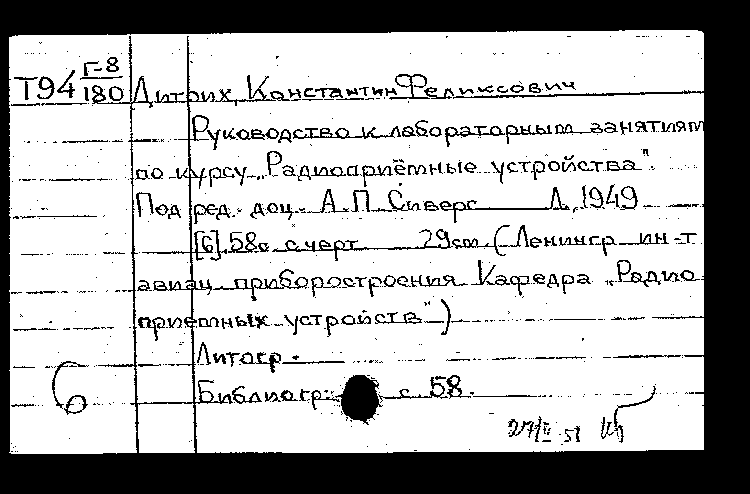 Т94 Г-8/180 Дитрих, Константин Феликсович
Руководство к лабораторным занятиям
по курсу „Радиоприёмные устройства".
Под ред. доц. А.П. Сиверс Л, 1949
[6], 58с. с черт. 29см. (Ленингр ин-т
авиац. приборостроения Кафедра „Радио
приемных устройств")
Литогр.
6 Библиогр: с. 58.
27/II 51